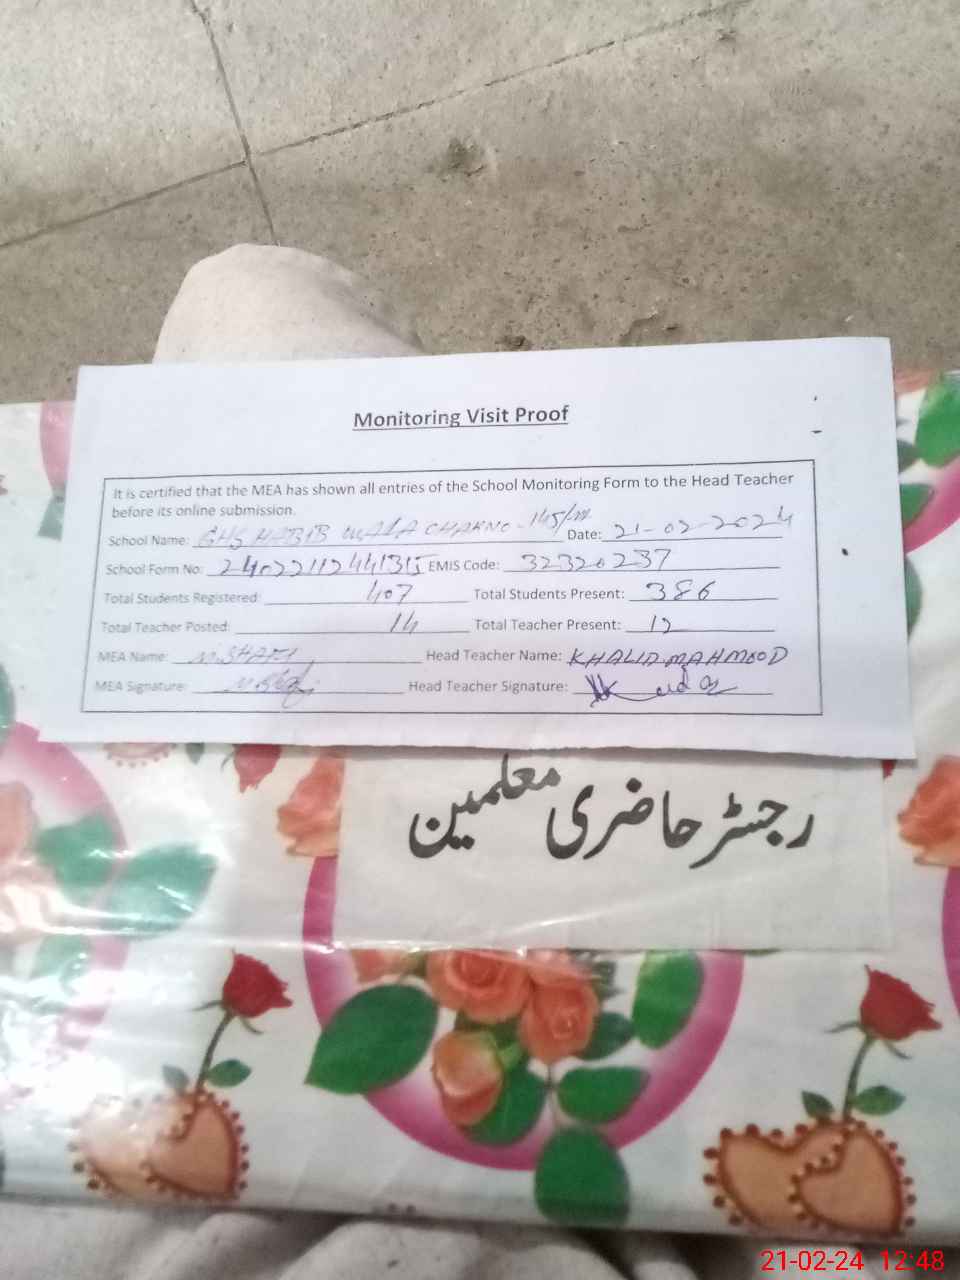 Monitoring Visit Proof
It is certified that the MEA has shown all entries of the School Monitoring Form to the Head Teacher
before its online submission.
School Name: GHS HABIB WALA CHAK NO. 145/M Date: 21-02-2024
School Form No: EMIS Code: 32320237
Total Students Registered: 407 Total Students Present: 386
Total Teacher Posted: 14 Total Teacher Present: 12
MEA Name: M. SHAFI Head Teacher Name: KHALID MAHMOOD
MEA Signature: Head Teacher Signature:
رجسٹر حاضری معلمین
21-02-24 12:48